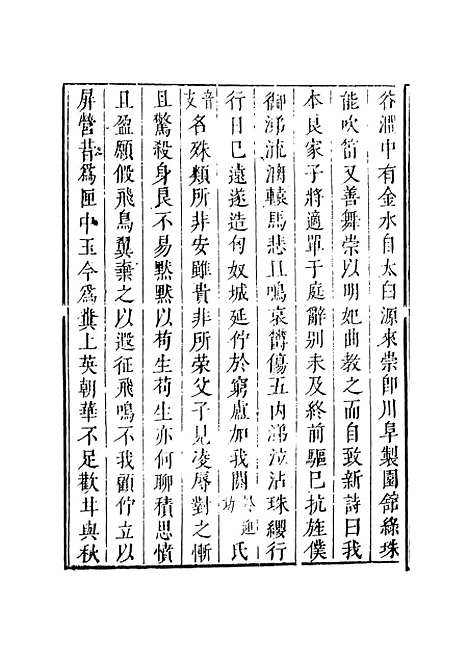 谷澗中有金水自太白源來崇即川阜製園館綠珠
能吹笛又善舞崇以明妃曲教之而自致新詩曰我
本良家子將適單于庭辭別未及終前驅已抗旌僕
御涕流離轅馬悲且鳴哀鬱傷五内涕泣沾珠纓行
行日已遠遂造匈奴城延佇於窮廬加我閼氏
音支名殊類所非安雖貴非所榮父子見凌辱對之慚
且驚殺身良不易默默以苟生苟生亦何聊積思憤
且盈願假飛鳥翼棄之以遐征飛鳴不我顧佇立以
屏營昔爲匣中玉今爲糞上英朝華不足歡甘與秋